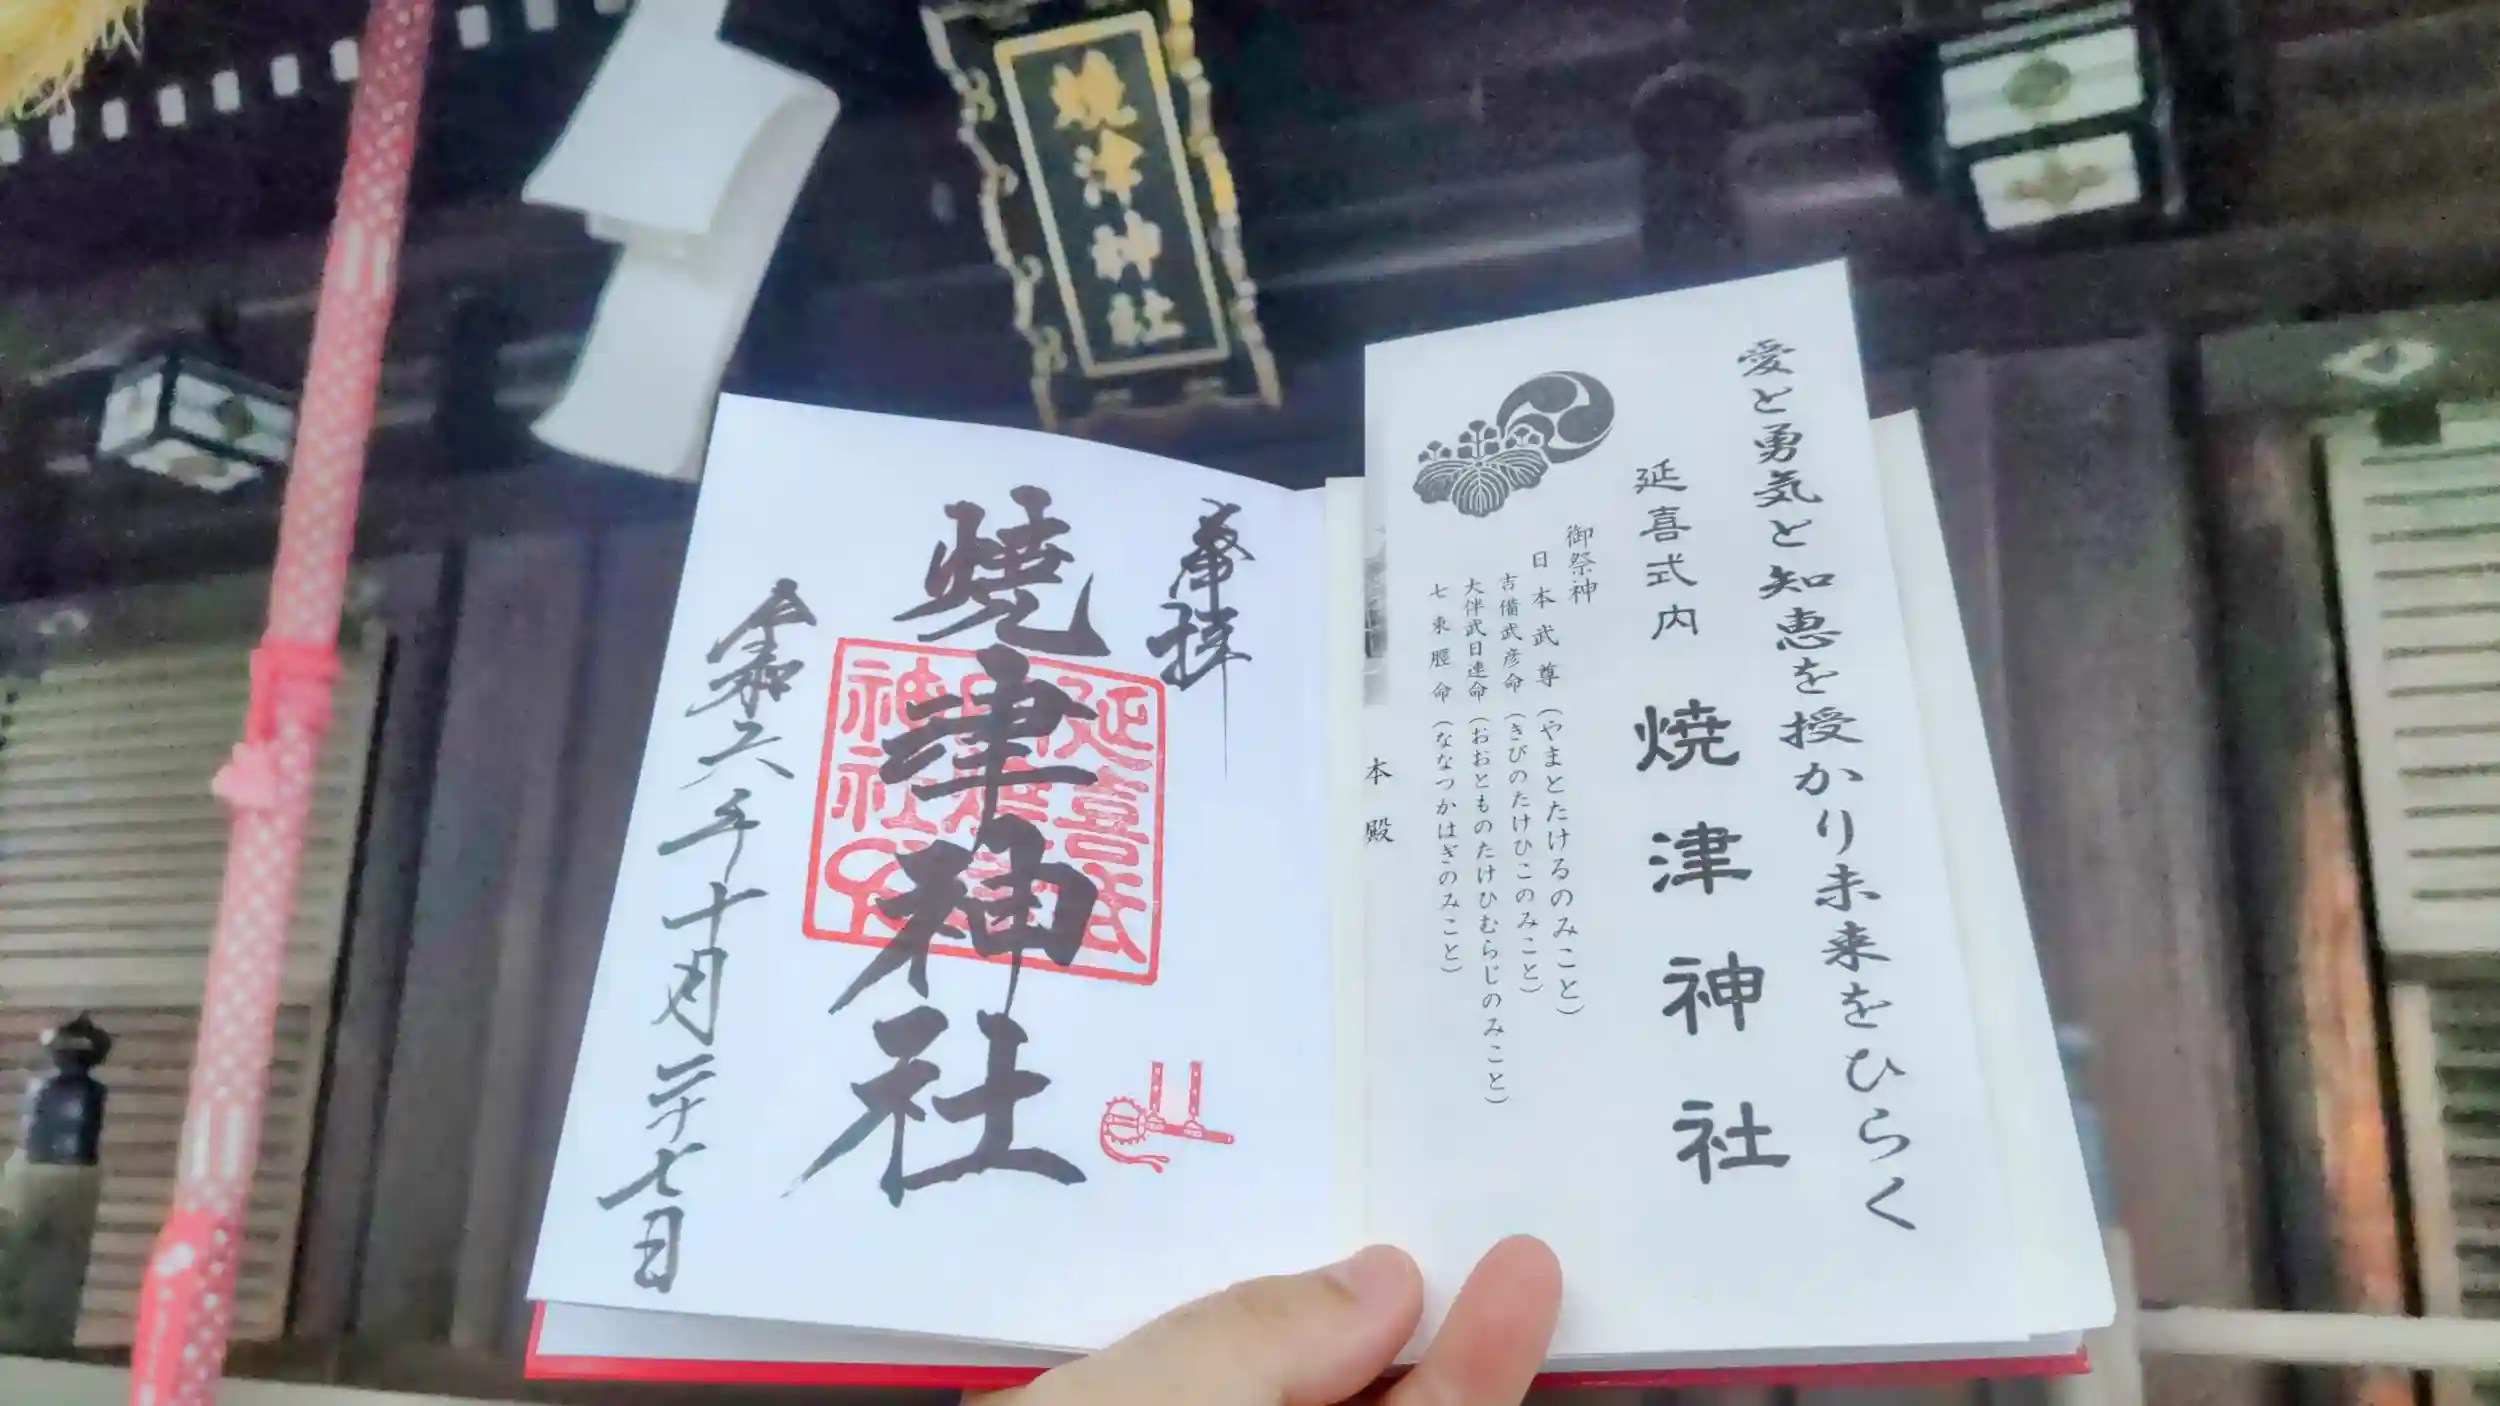 焼津神社
愛と勇気と知恵を授かり未来をひらく
延喜式内 焼津神社
御祭神
日本武尊(やまとたけるのみこと)
吉備武彦命(きびのたけひこのみこと)
大伴武日連命(おおとものたけひむらじのみこと)
七束脛命(ななつかはぎのみこと)
本殿
奉拝
焼津神社
延喜式
神社
令和六年十月二十七日